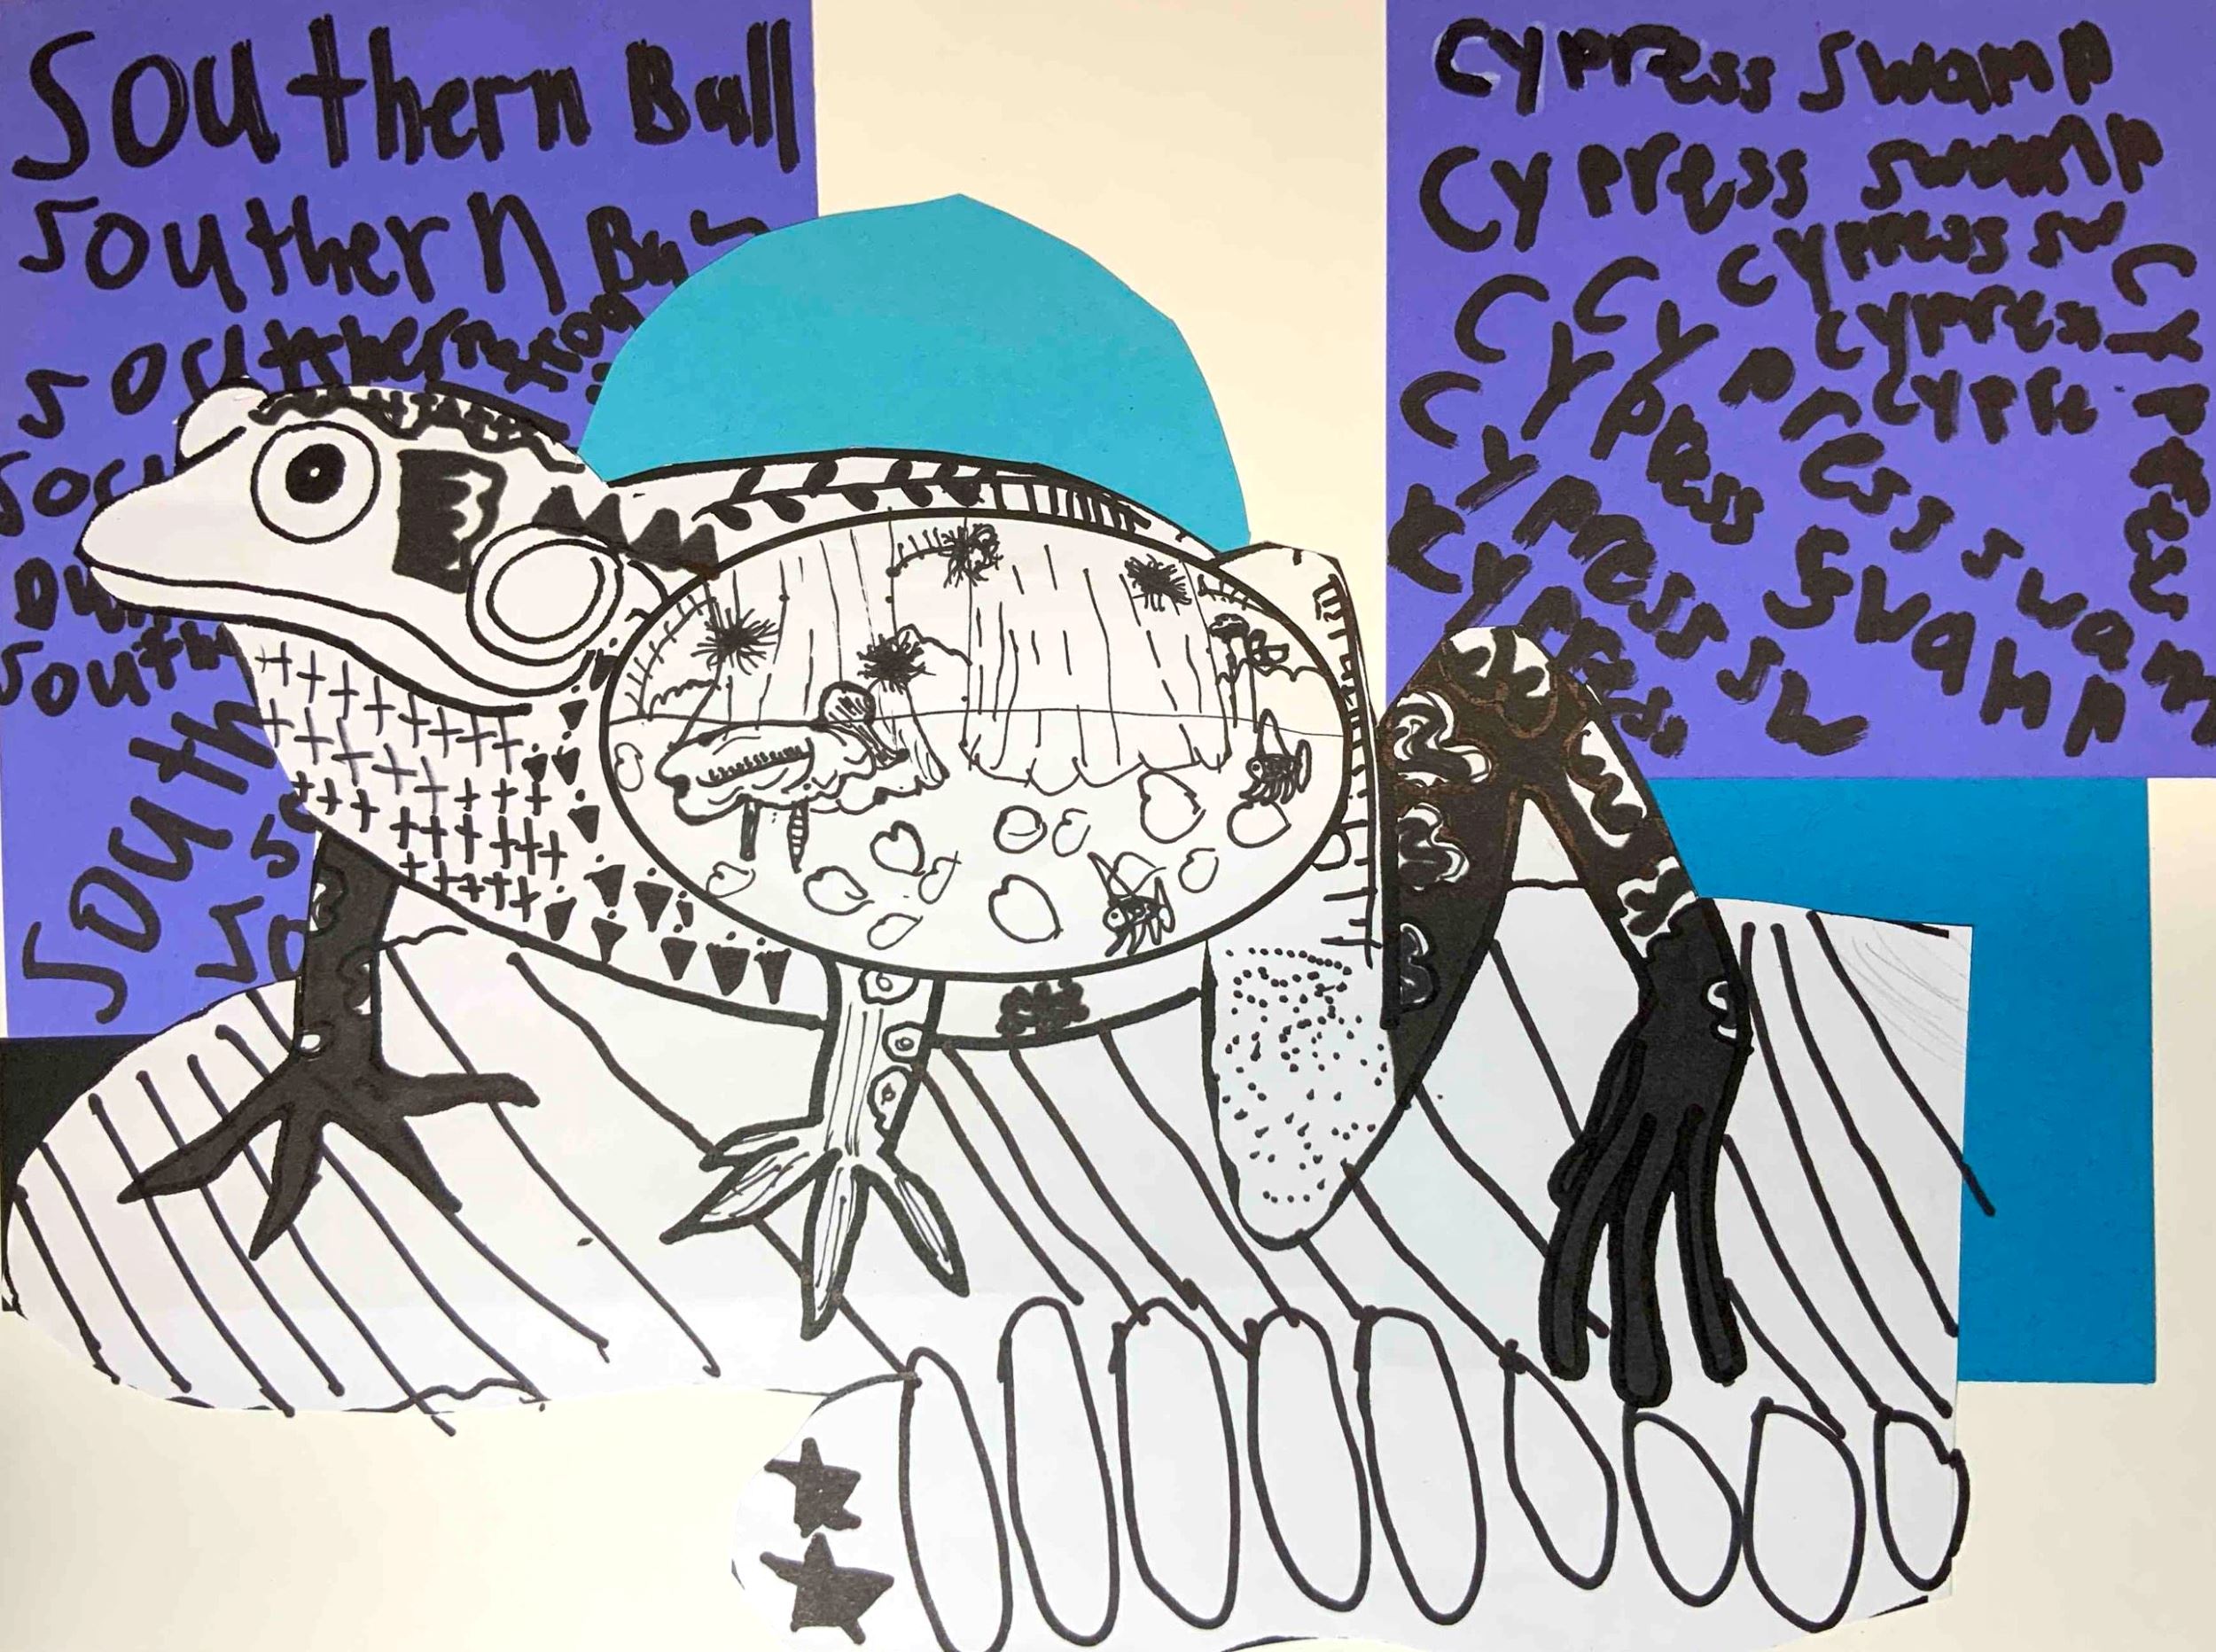 Southern Bull
Southern Bu
Southern frog
Sou
Bu
South
South
So
So
Cypress Swamp
Cypress swamp
cypress sw
cypress
cypre
Cypress
Cypress swamp
Cypress Swamp
Cypress sw
Cypress